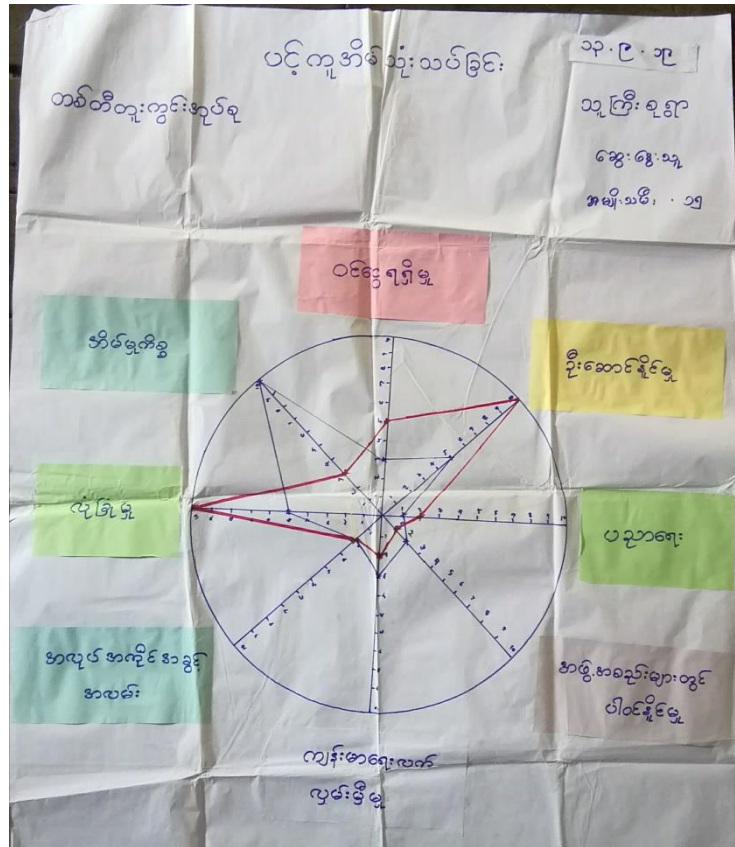 ပင့်ကူအိမ်သုံးသပ်ခြင်း
၁၃.၉.၁၉
သူကြီးစုရွာ
ဆွေးနွေးသူ
အမျိုးသမီး . ၁၅
ဝင်ငွေရရှိမှု
အိမ်မှုကိစ္စ
ဦးဆောင်နိုင်မှု
လုံခြုံမှု
ပညာရေး
အလုပ်အကိုင်အခွင့်
အလမ်း
အဖွဲ့အစည်းများတွင်
ပါဝင်နိုင်မှု
ကျန်းမာရေးလက်
လှမ်းမှီမှု